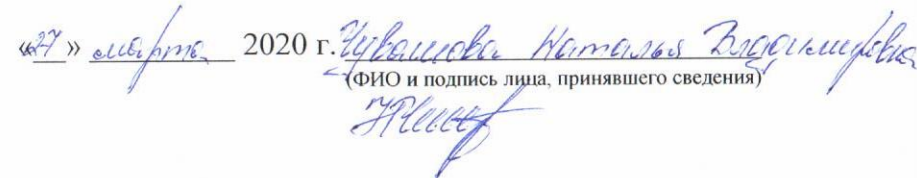 «27» марта 2020 г. Чувашова Наталья Владимировна
(ФИО и подпись лица, принявшего сведения)